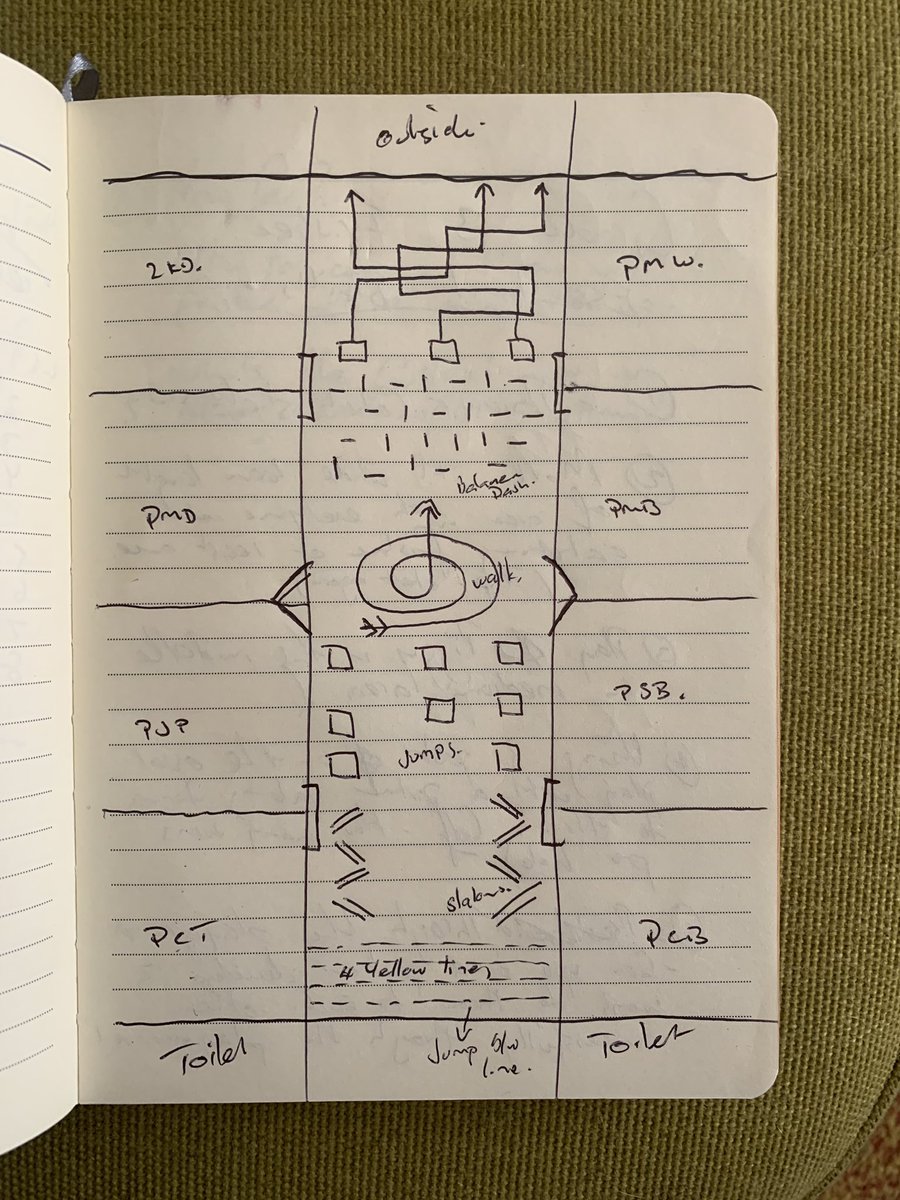 Outside
2KD.
PMW.
Balance
Dash.
PMD
PMB
walk.
PSB.
PJP
Jumps.
slaloms.
PCT
PCB
4 Yellow lines
Toilet
Jump b/w
line.
Toilet